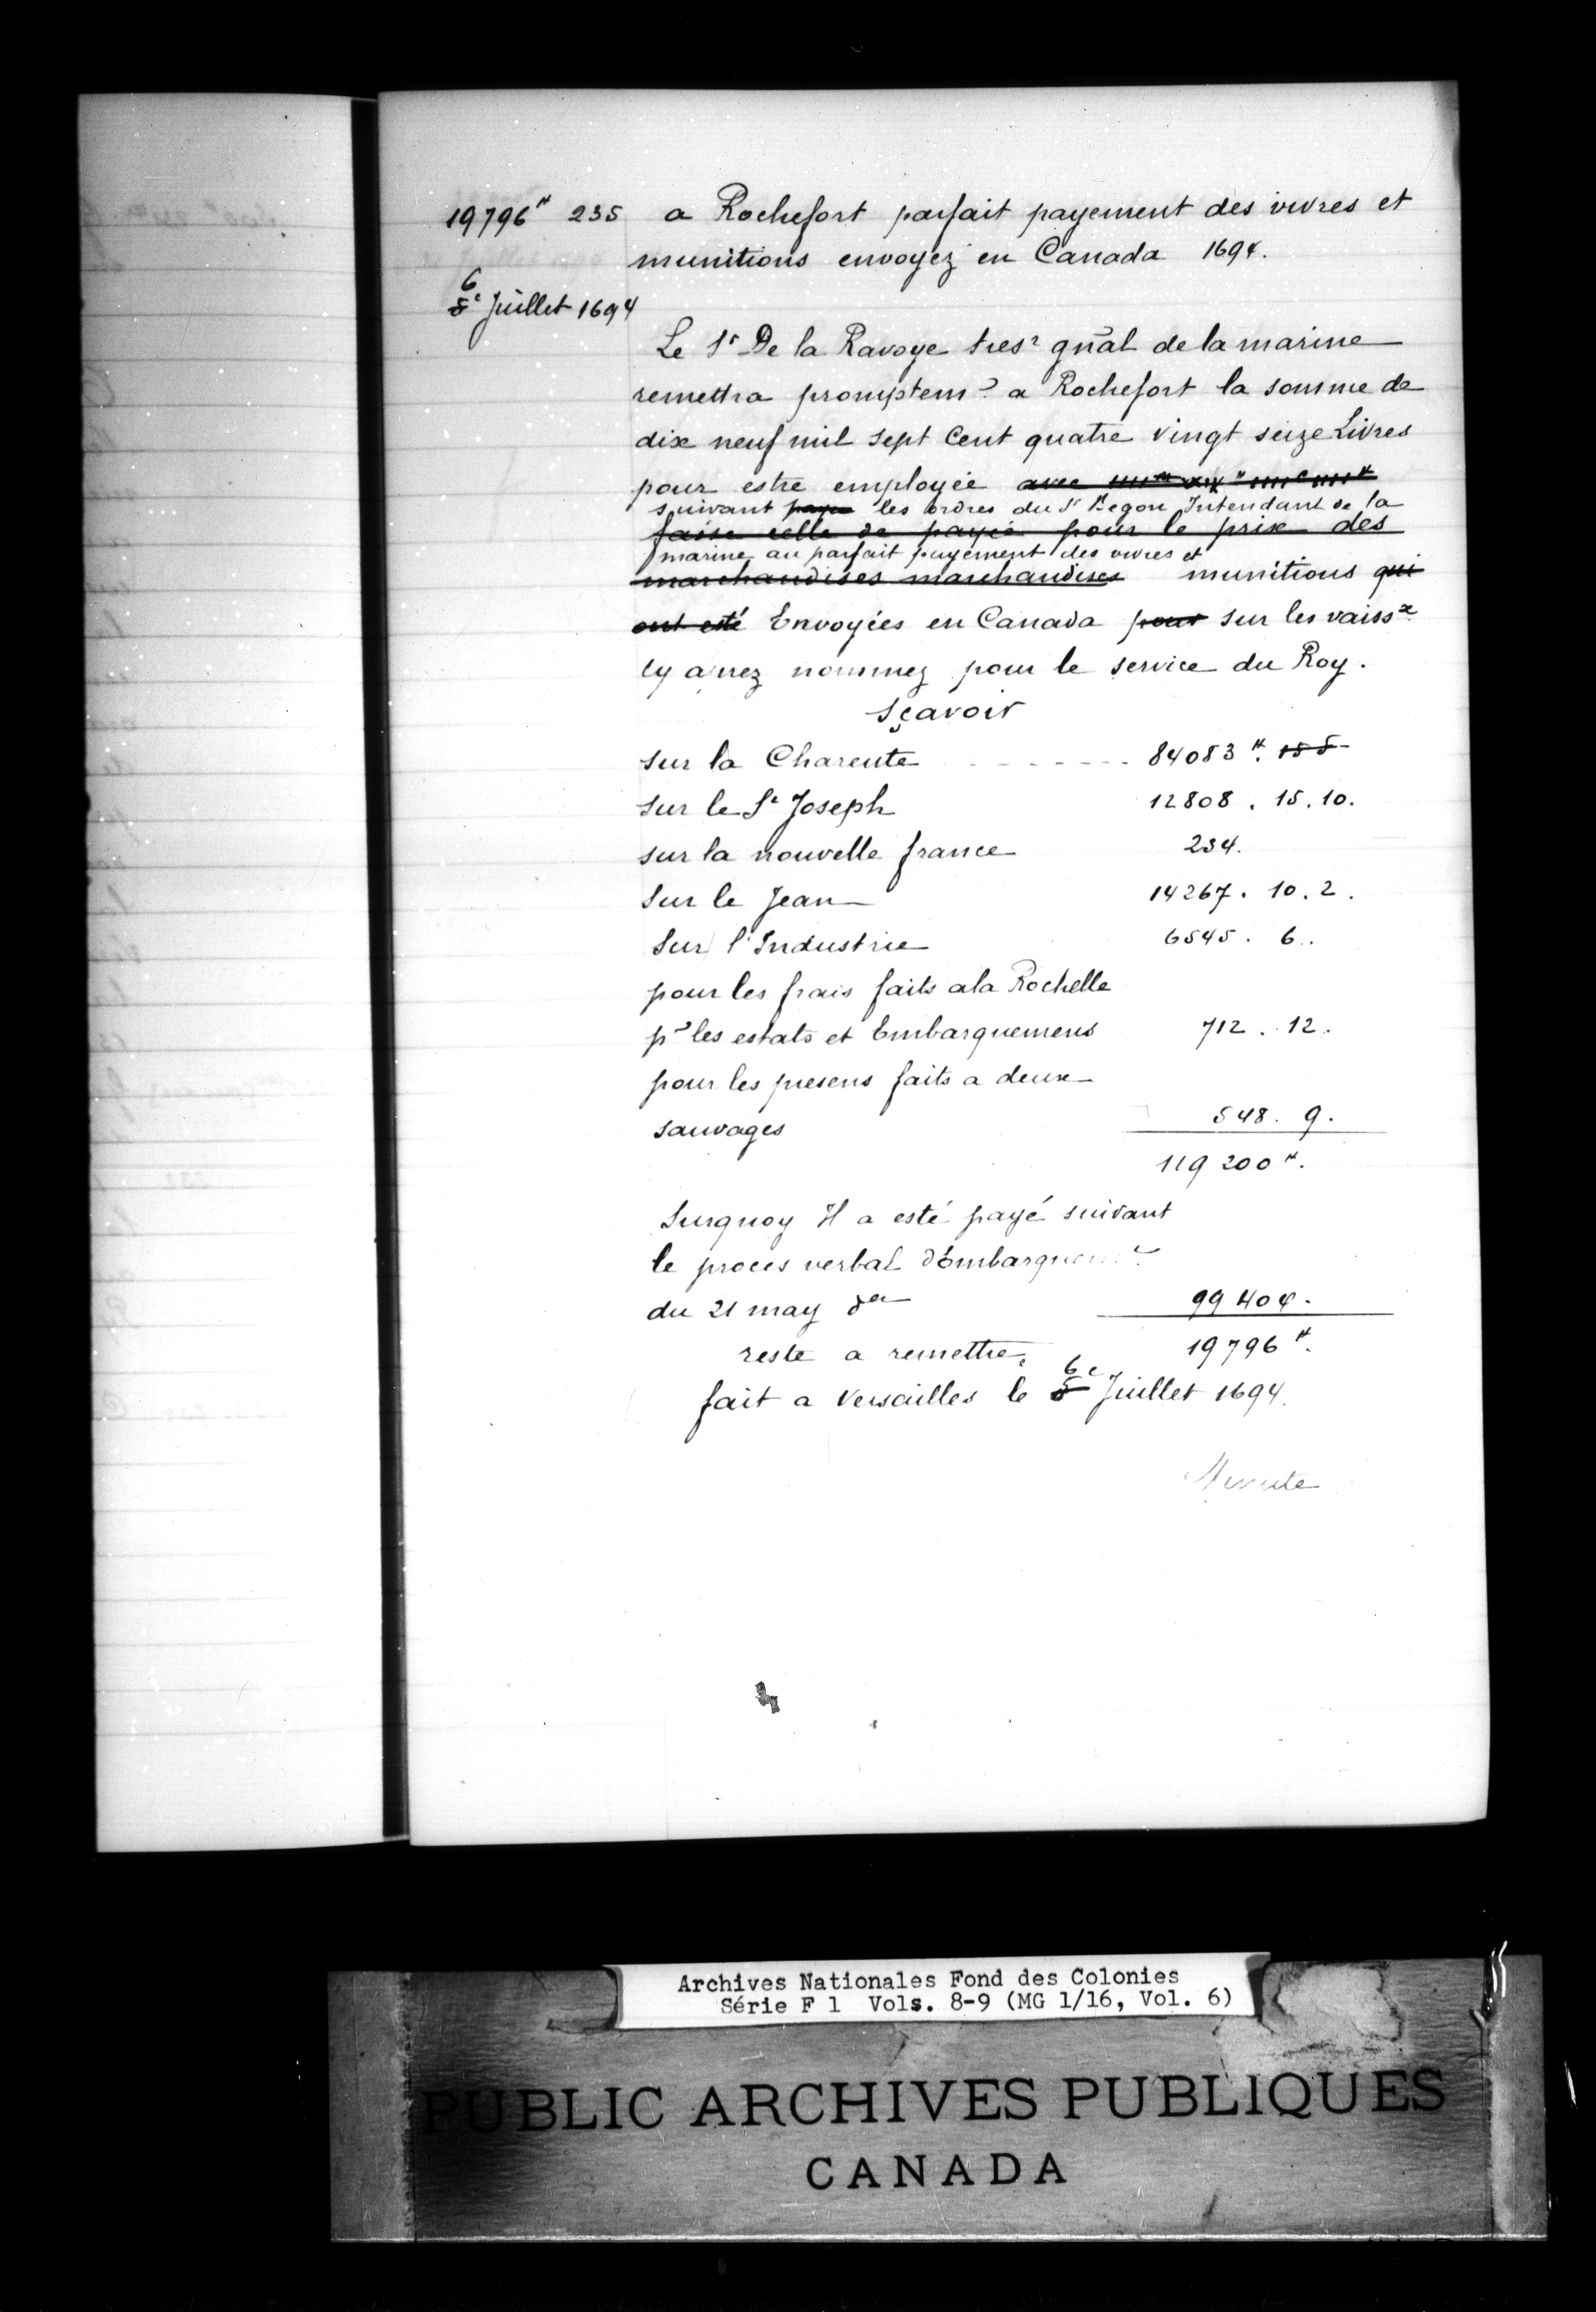 19796ᵗᵗ 235 a Rochefort parfait payement des vivres et
munitions envoyez en Canada 1694.
6
5ᵉ Juillet 1694
Le Sʳ De la Ravoye tresʳ gñal de la marine
remettra promptemᵗ a Rochefort la somme de
dix neuf mil sept Cent quatre Vingt seize Livres
pour estre employée avec
suivant les ordres du Sʳ Begon Intendant de la
faise celle de payée pour le prix des
marine au parfait payement des vivres et
marchandises marchandises munitions qui
ont esté Envoyées en Canada pour sur les vaissˣ
cy aprez nommez pour le service du Roy.
Sçavoir
sur la Charente - - - - - - - 84083ᵗᵗ. 15 5
sur le Sᵗ Joseph 12808. 15. 10.
sur la nouvelle france 234.
sur le Jean 14267. 10. 2.
sur l'Industrie 6545. 6.
pour les frais faits ala Rochelle
pʳ les estats et Embarquemens 712. 12.
pour les presens faits a deux
sauvages 548. 9.
119200ᵗᵗ.
Surquoy Il a esté payé suivant
le proces verbal d'Embarquemᵗ
du 21 may dᵉʳ 99404.
reste a remettre. 19796ᵗᵗ.
fait a Versailles le 5 6ᵉ Juillet 1694.
Minute
Archives Nationales Fond des Colonies
Série F 1 Vols. 8-9 (MG 1/16, Vol. 6)
PUBLIC ARCHIVES PUBLIQUES
CANADA